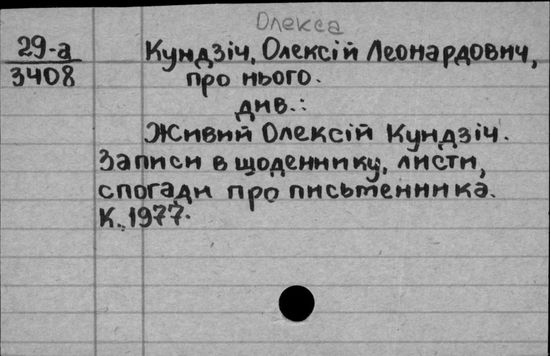 Олекса
29-а
3408
Кундзіч, Олексій Леонардович,
про нього.
див.:
Живий Олексій Кундзіч.
Записи в щоденнику, листи,
спогади про письменника.
К., 1977.